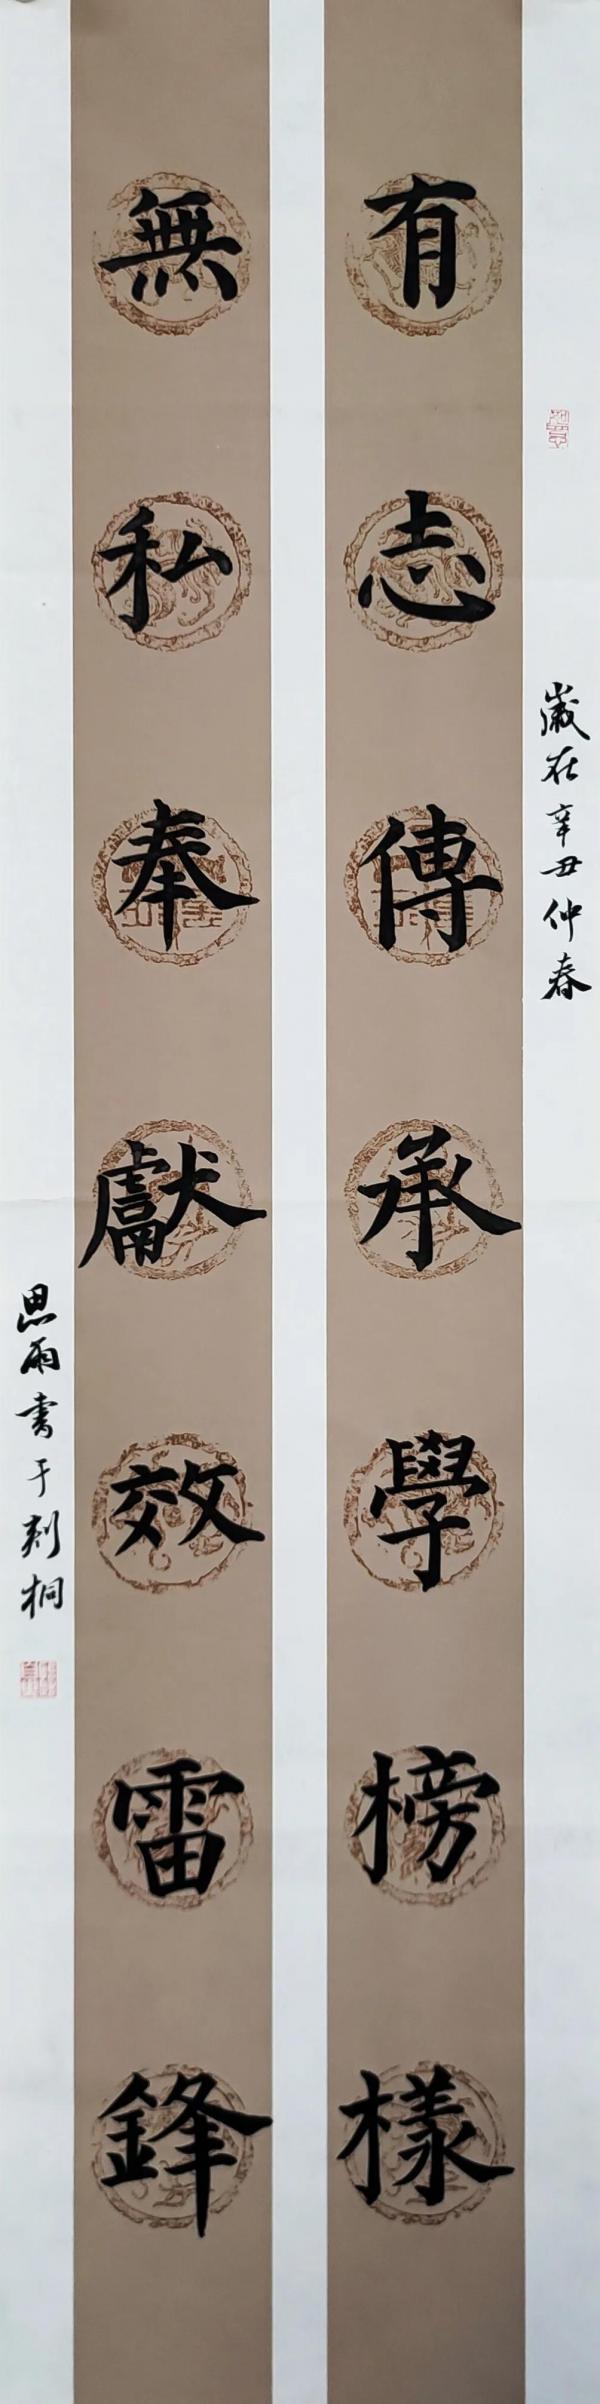 歲在辛丑仲春
有志傳承學榜樣
無私奉獻效雷鋒
思雨書于刺桐